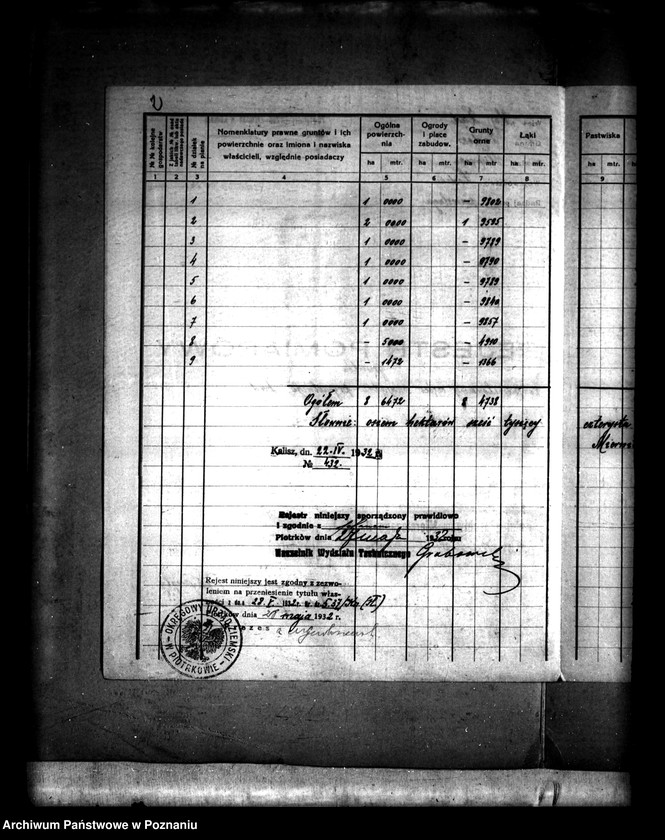 №№ kolejne gospodarstw
№ działek na planie
Nomenklatury prawne gruntów i ich powierzchnie oraz imiona i nazwiska właścicieli, względnie posiadaczy
Ogólne powierzchnia
Ogrody i place zabudow.
Grunty orne
Łąki
Pastwiska
ha mtr. ha mtr. ha mtr. ha mtr. ha mtr.
1 2 3 4 5 6 7 8 9
1 1 0000 — 9802
2 2 0000 1 9595
3 1 0000 — 9789
4 1 0000 — 9790
5 1 0000 — 9789
6 1 0000 — 9840
7 1 0000 — 9857
8 — 5000 — 4910
9 — 1472 — 1366
Ogółem 8 6472 8 4738
Słownie: osiem hektarów sześć tysięcy czterysta
Kalisz, dn. 22.IV. 1932 r.
№ 432.
Rejestr niniejszy sporządzony prawidłowo
i zgodnie z
Piotrków dnia 1932 roku
Naczelnik Wydziału Technicznego
Rejest niniejszy jest zgodny z zezwoleniem
na przeniesienie tytułu własności
z dn. 28.V. 1932 r.
Piotrków dnia 28 maja 1932 r.
Prezes
OKRĘGOWY URZĄD ZIEMSKI W PIOTRKOWIE
Archiwum Państwowe w Poznaniu